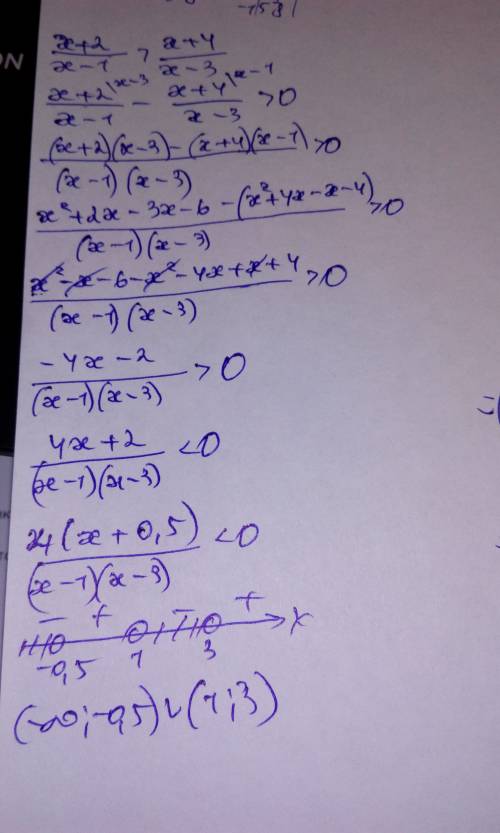 -1/58/
ON
x+2/x-1 > x+4/x-3
x+2\x-3/x-1 - x+4\x-1/x-3 >0
(x+2)(x-3)-(x+4)(x-1)/(x-1)(x-3) >0
x²+2x-3x-6-(x²+4x-x-4)/(x-1)(x-3) >0
x²-x-6-x²-4x+x+4/(x-1)(x-3) >0
-4x-2/(x-1)(x-3) >0
4x+2/(x-1)(x-3) <0
4(x+0,5)/(x-1)(x-3) <0
- + - +
-0,5 1 3 x
(-∞;-0,5)∪(1;3)